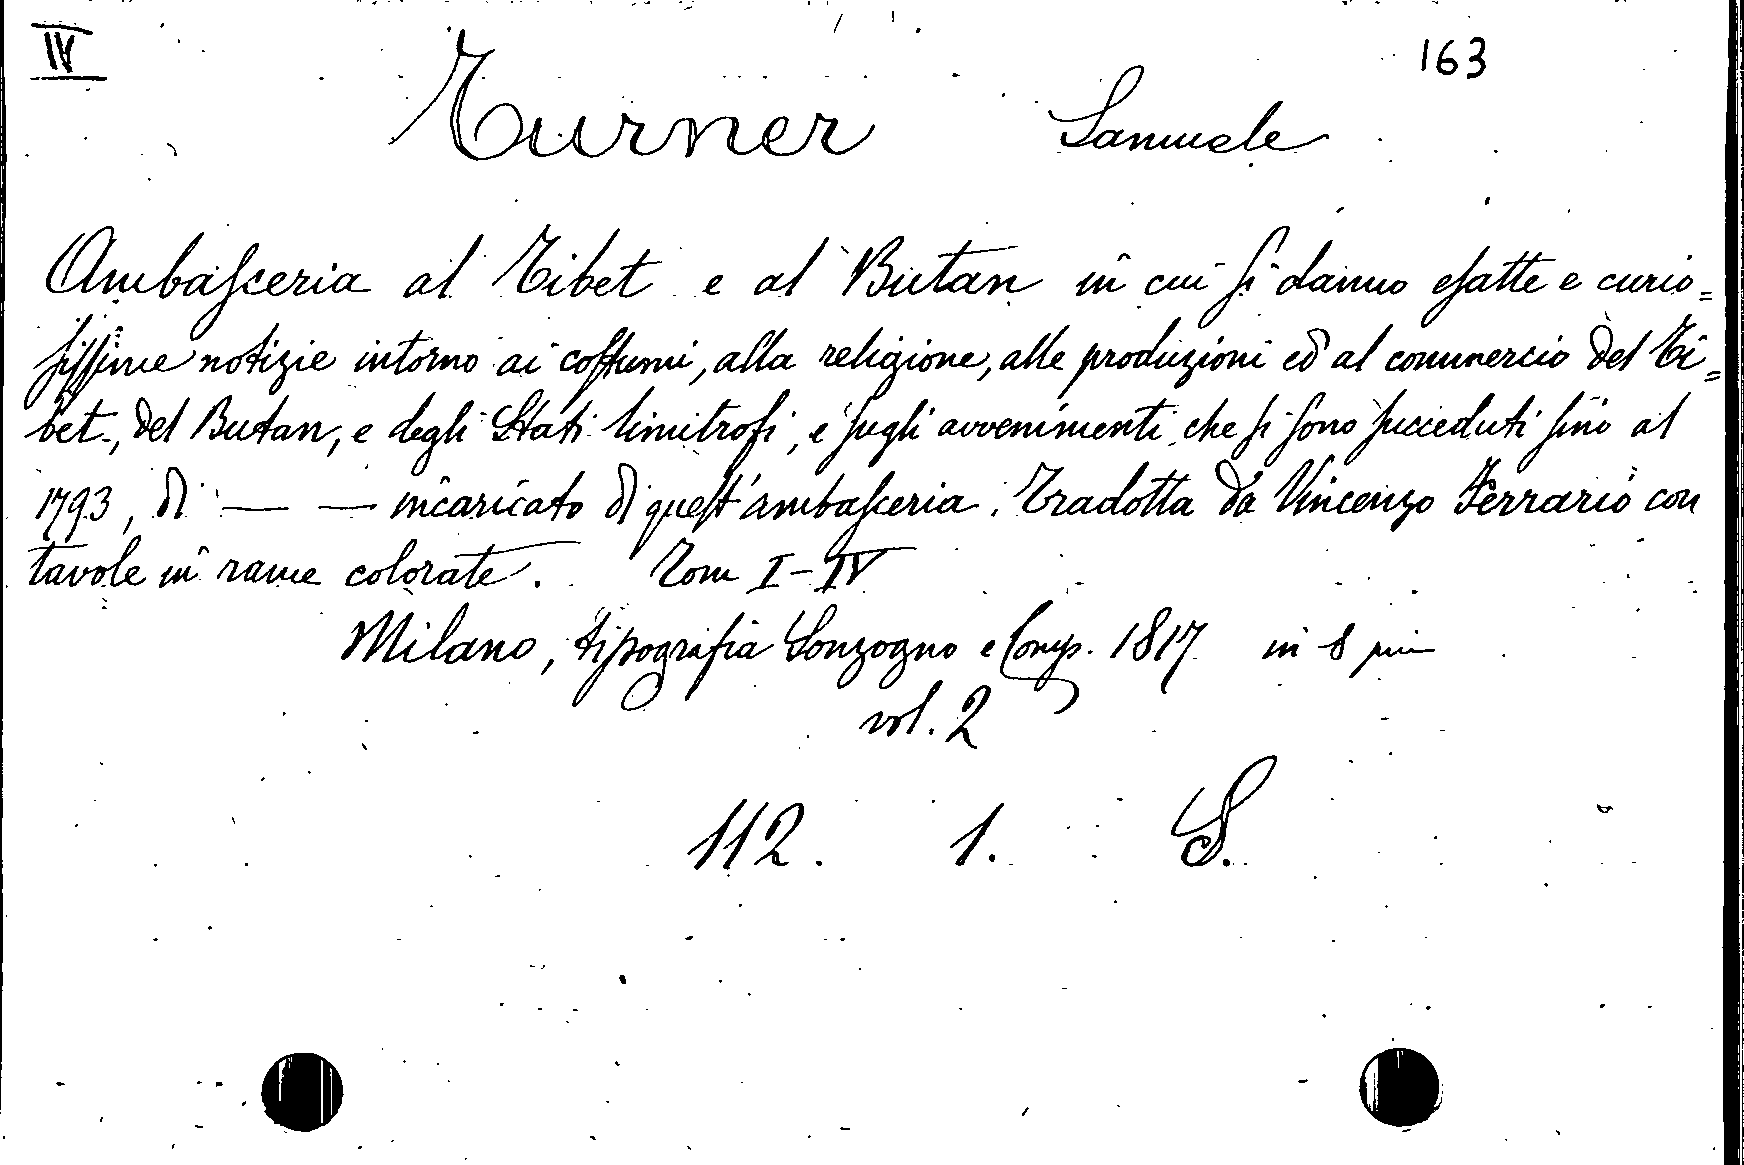 IV
163
Turner Samuele
Ambasceria al Tibet e al Butan in cui si danno esatte e curio=
sissime notizie intorno ai costumi, alla religione, alle produzioni ed al commercio del Ti=
bet, del Butan, e degli Stati limitrofi, e sugli avvenimenti che si sono succeduti sino al
1793, di — — incaricato di quest'ambasceria. Tradotta da Vincenzo Ferrario con
tavole in rame colorate. Tom I-IV
Milano, tipografia Sonzogno e Comp. 1817 in 8 pic
vol. 2
112. 1. S.